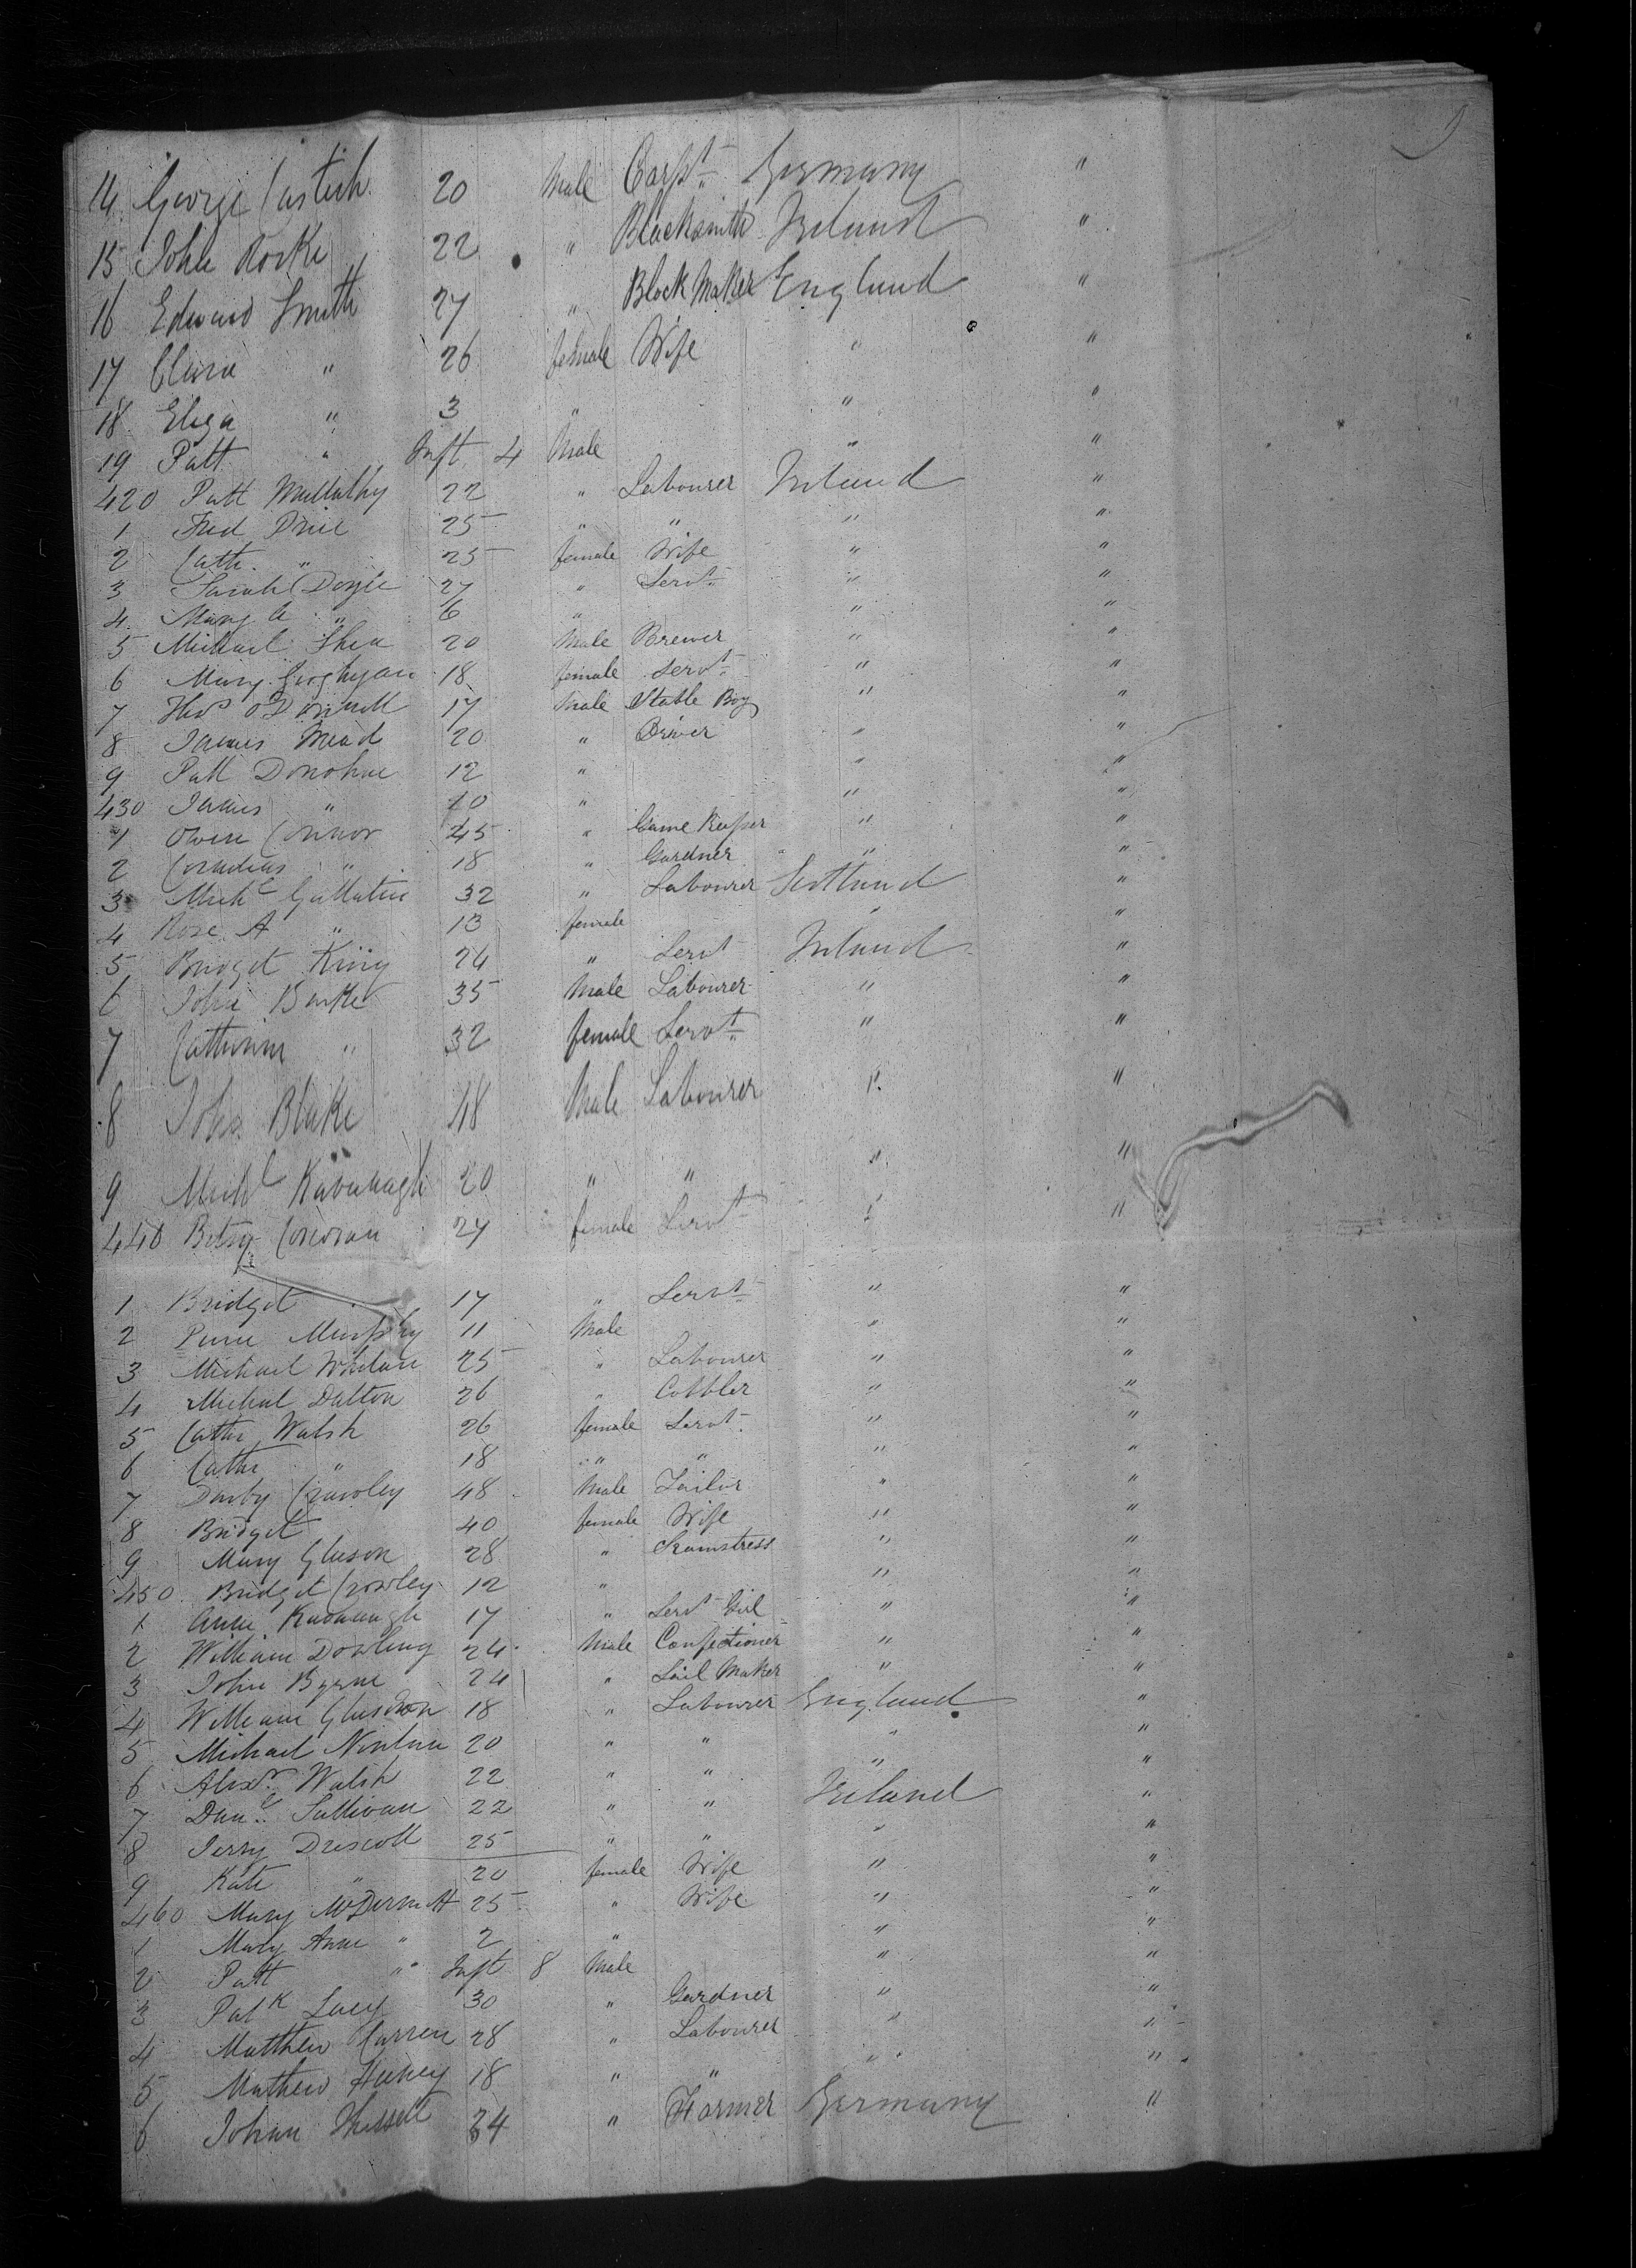 14 George Castich 20 Male Carpt Germany "
15 John Rorke 22 " Blacksmith Ireland "
16 Edward Smith 27 " Block Maker England "
17 Clara " 26 female Wife " "
18 Eliza " 3 " " "
19 Patt " Inft 4 Male " "
420 Patt Mullathy 22 " Labourer Ireland "
1 Fred Price 25 " " " "
2 Cath. " 25 female Wife " "
3 Sarah Doyle 27 " Servt " "
4 Mary A " 6 " " "
5 Michael Shea 20 Male Brewer " "
6 Mary Geoghgan 18 female Servt " "
7 Thos O'Donnell 17 Male Stable Boy " "
8 James Mead 20 " Driver " "
9 Patt Donohue 12 " " "
430 James " 10 " " "
1 Owen Connor 45 " Game Keeper " "
2 Cornelius " 18 " Gardner " "
3 Michl Gallatin 32 " Labourer Scotland "
4 Rose A " 13 female " "
5 Bridget King 24 " Servt Ireland "
6 John Burke 35 Male Labourer " "
7 Catherine " 32 female Servt " "
8 John Blake 48 Male Labourer " "
9 Michl Kavanagh 20 " " " "
440 Betsy Corcoran 24 female Servt " "
1 Bridget 17 " Servt " "
2 Murphy 11 Male " "
3 Michael Whelan 25 " Labourer " "
4 Micheal Dalton 26 " Cobbler " "
5 Cathe Walsh 26 female Servt " "
6 Cathe " 18 " " " "
7 Darby Crowley 48 Male Tailor " "
8 Bridget 40 female Wife " "
9 Mary Gleeson 28 " Seamstress " "
450 Bridget Crowley 12 " " "
1 Anne Kavanagh 17 " Servt Girl " "
2 William Dowling 24 Male Confectioner " "
3 John Byrne 24 " Sail Maker " "
4 William 18 " Labourer England "
5 Michael 20 " " " "
6 Alexr Walsh 22 " " " "
7 Danl Sullivan 22 " " Ireland "
8 Jerry Driscoll 25 " " " "
9 Kate " 20 female Wife " "
460 Mary McDermott 25 " Wife " "
1 Mary Anne " 2 " " "
2 Patt " Inft 8 Male " "
3 Patk Lacy 30 " Gardner " "
4 Matthew Curren 28 " Labourer " "
5 Mathew Heeney 18 " " " "
6 Johan 34 " Farmer Germany "